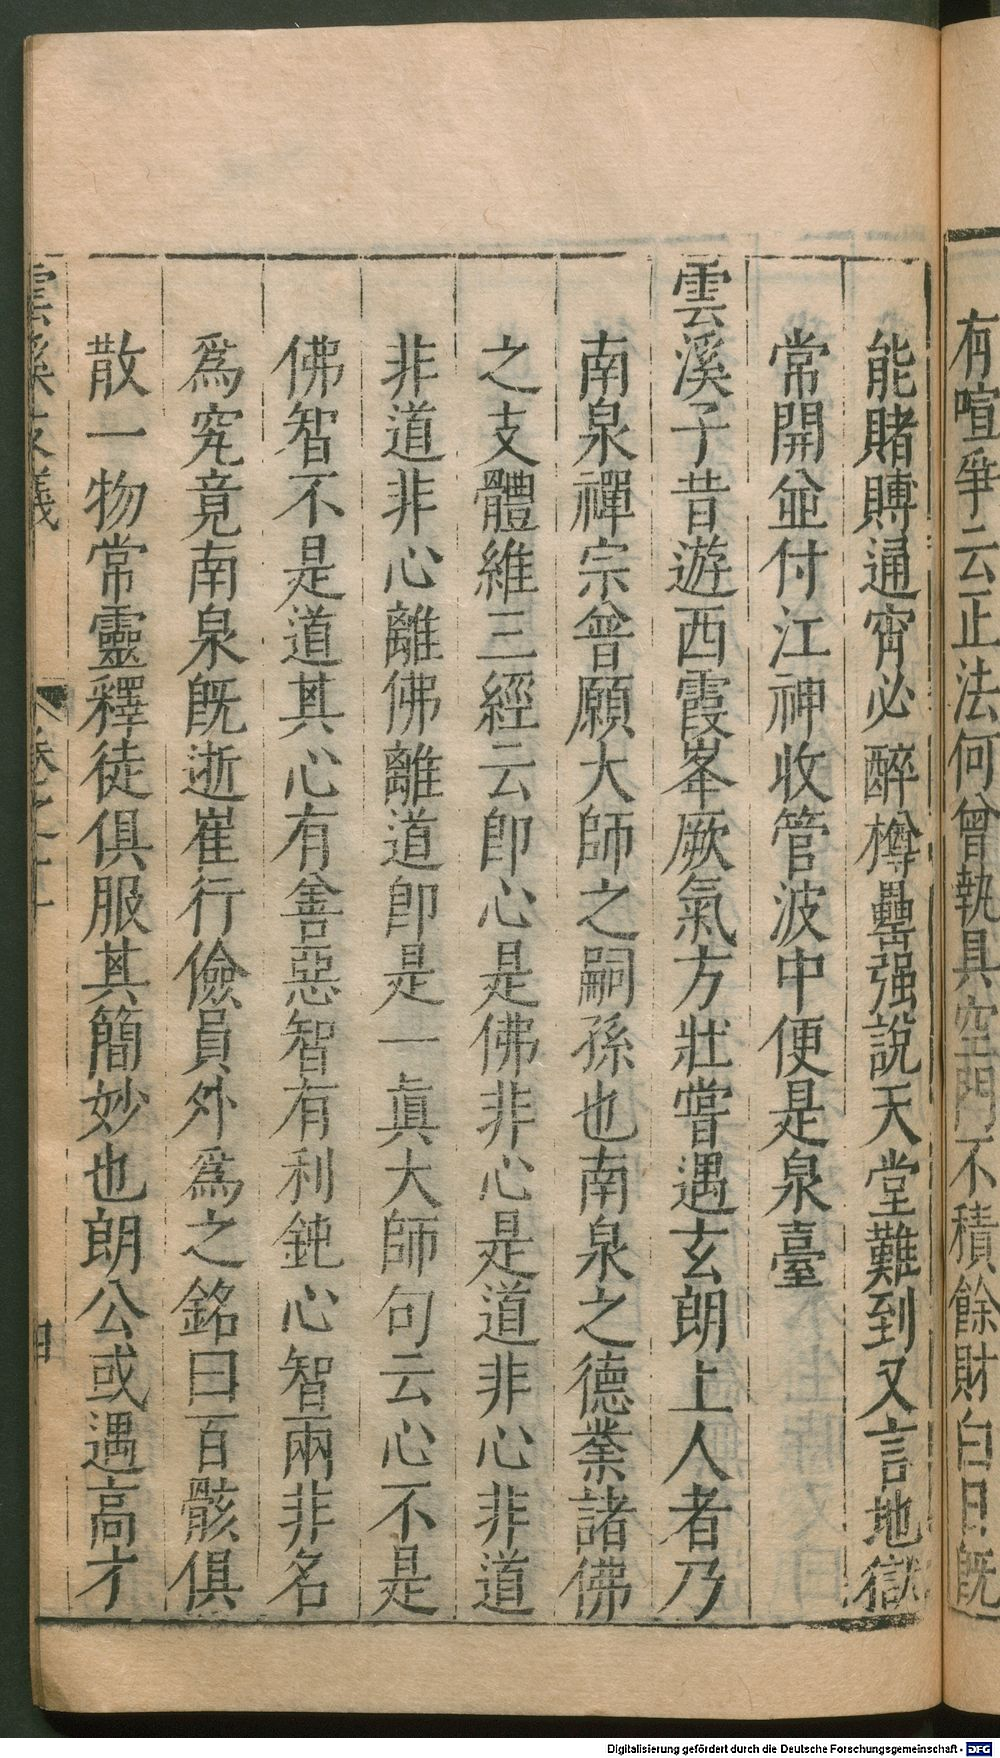 有喧爭云正法何曾執具空門不積餘財白日既
能賭賻通宵必醉樽罍强說天堂難到又言地獄
常開並付江神收管波中便是泉臺
雲溪子昔遊西霞峯厥氣方壯嘗遇玄朗上人者乃
南泉禪宗曾願大師之嗣孫也南泉之德業諸佛
之支體維三經云卽心是佛非心是道非心非道
非道非心離佛離道卽是一眞大師句云心不是
佛智不是道其心有善惡智有利鈍心智兩非名
爲究竟南泉既逝崔行儉員外爲之銘曰百骸俱
散一物常靈釋徒俱服其簡妙也朗公或遇高才
雲溪友議
卷之十
四
Digitalisierung gefördert durch die Deutsche Forschungsgemeinschaft - DFG